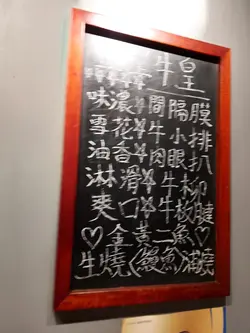 牛皇
味濃牛間隔膜
雪花牛小排
油香牛肉眼扒
淋滑牛柳
爽口牛𦟌
♡金黃二魚♡
生燒(鰻魚)